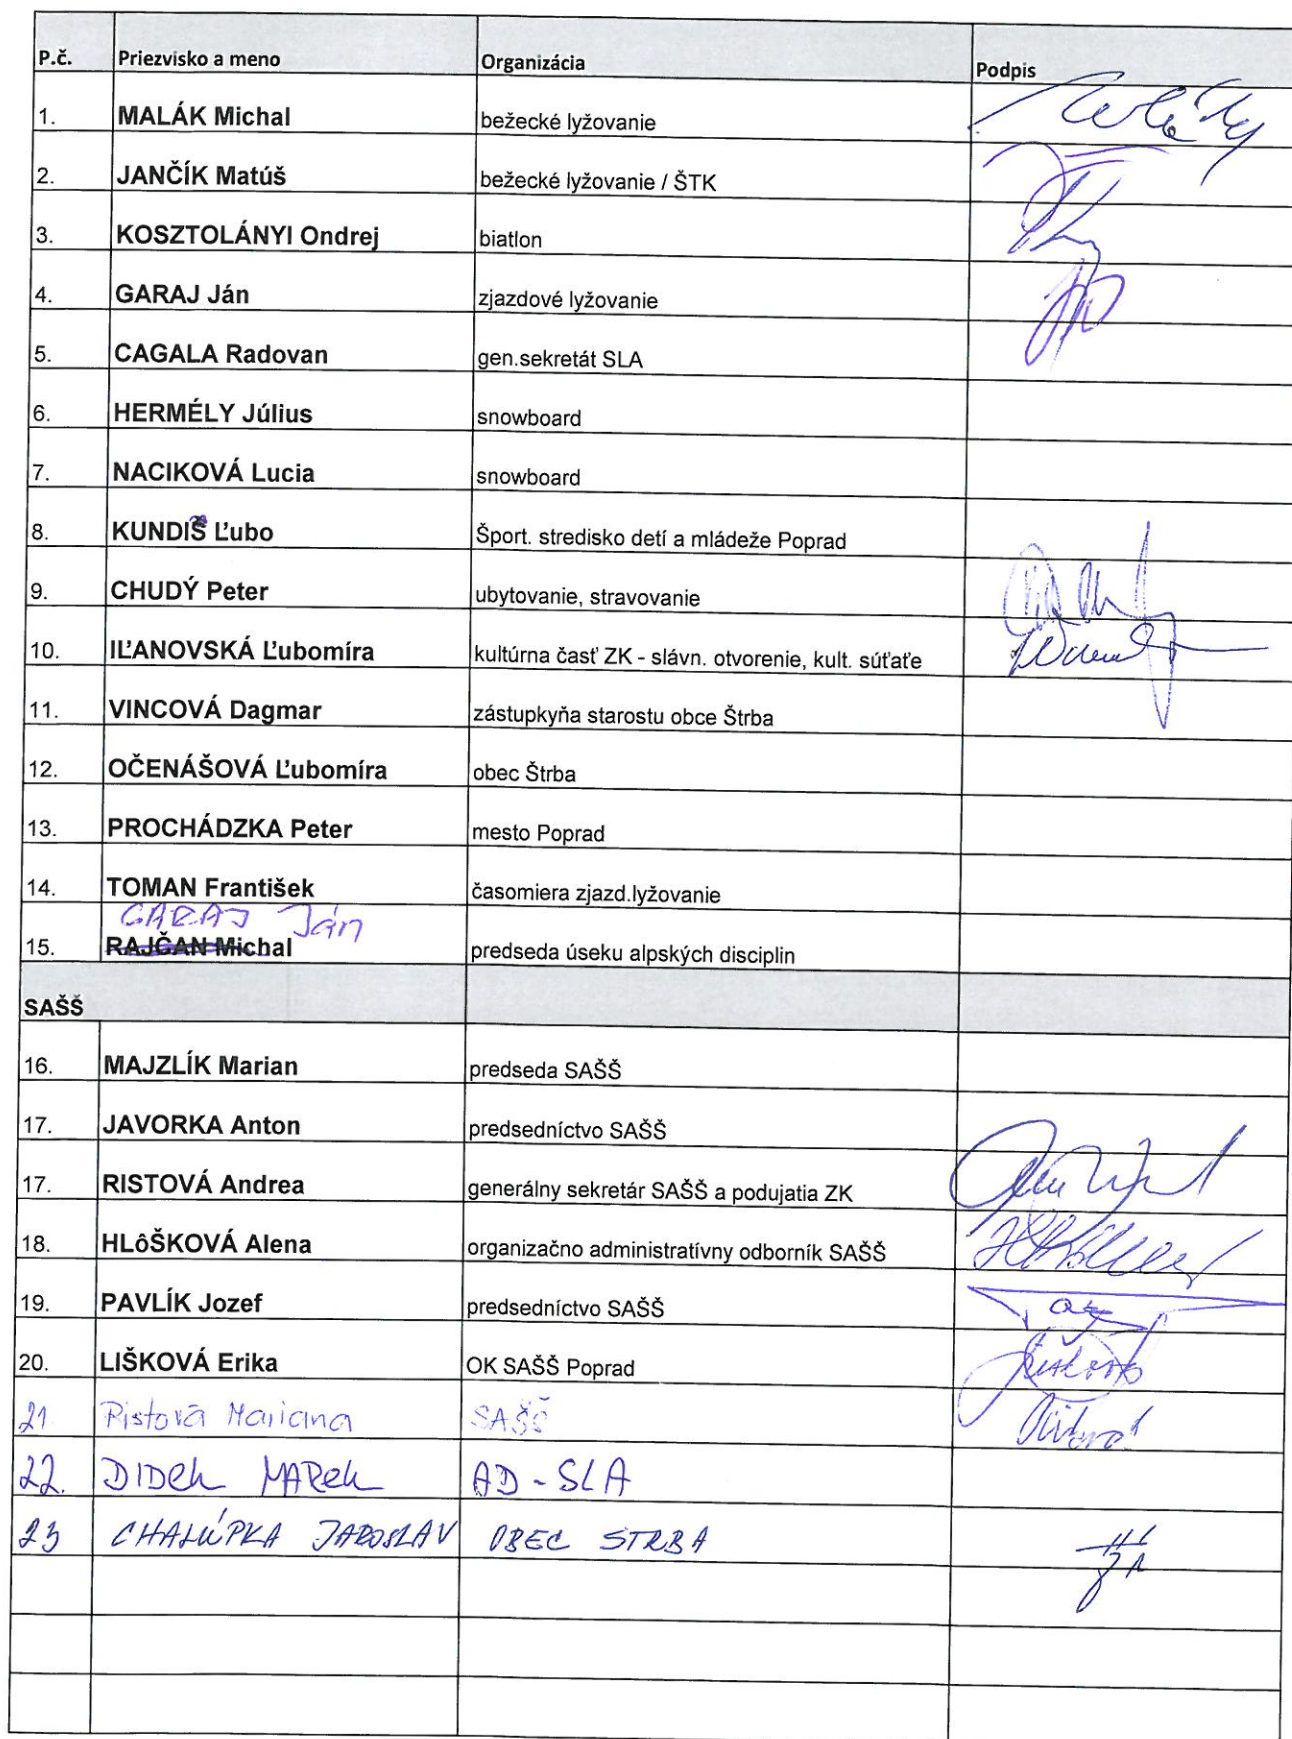 P.č. Priezvisko a meno Organizácia Podpis
1. MALÁK Michal bežecké lyžovanie
2. JANČÍK Matúš bežecké lyžovanie / ŠTK
3. KOSZTOLÁNYI Ondrej biatlon
4. GARAJ Ján zjazdové lyžovanie
5. CAGALA Radovan gen.sekretát SLA
6. HERMÉLY Július snowboard
7. NACIKOVÁ Lucia snowboard
8. KUNDIŠ Ľubo Šport. stredisko detí a mládeže Poprad
9. CHUDÝ Peter ubytovanie, stravovanie
10. IĽANOVSKÁ Ľubomíra kultúrna časť ZK - slávn. otvorenie, kult. súťaťe
11. VINCOVÁ Dagmar zástupkyňa starostu obce Štrba
12. OČENÁŠOVÁ Ľubomíra obec Štrba
13. PROCHÁDZKA Peter mesto Poprad
14. TOMAN František časomiera zjazd.lyžovanie
GARAJ Ján
15. RAJČAN Michal predseda úseku alpských disciplin
SAŠŠ
16. MAJZLÍK Marian predseda SAŠŠ
17. JAVORKA Anton predsedníctvo SAŠŠ
17. RISTOVÁ Andrea generálny sekretár SAŠŠ a podujatia ZK
18. HLôŠKOVÁ Alena organizačno administratívny odborník SAŠŠ
19. PAVLÍK Jozef predsedníctvo SAŠŠ
20. LIŠKOVÁ Erika OK SAŠŠ Poprad
21 Ristová Mariana SAŠŠ
22. DIDEK MAREK AD - SLA
23 CHALÚPKA JAROSLAV OBEC STRBA